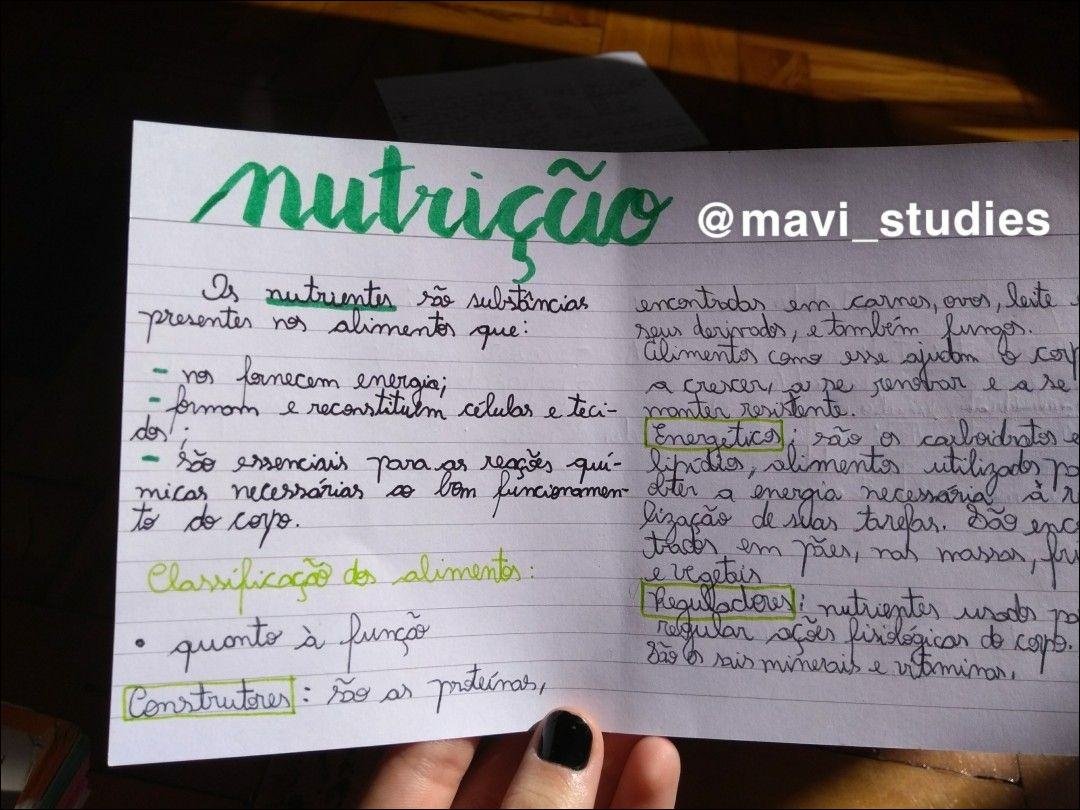 nutrição
@mavi_studies
Os nutrientes são substâncias
presentes nos alimentos que:
- nos fornecem energia;
- formam e reconstituem células e teci-
dos;
- são essenciais para as reações quí-
micas necessárias ao bom funcionamen-
to do corpo.
Classificação dos alimentos:
• quanto à função
Construtores: são as proteínas,
encontradas em carnes, ovos, leite e
seus derivados, e também fungos.
Alimentos como esse ajudam o corp
a crescer, a se renovar e a se
manter resistente.
Energéticos: são os carboidratos e
lipídios, alimentos utilizados pa
obter a energia necessária à r
lização de suas tarefas. São enco
trados em pães, nas massas, fru
e vegetais
Reguladores: nutrientes usados pa
regular ações fisiológicas do corpo.
São os sais minerais e vitaminas,